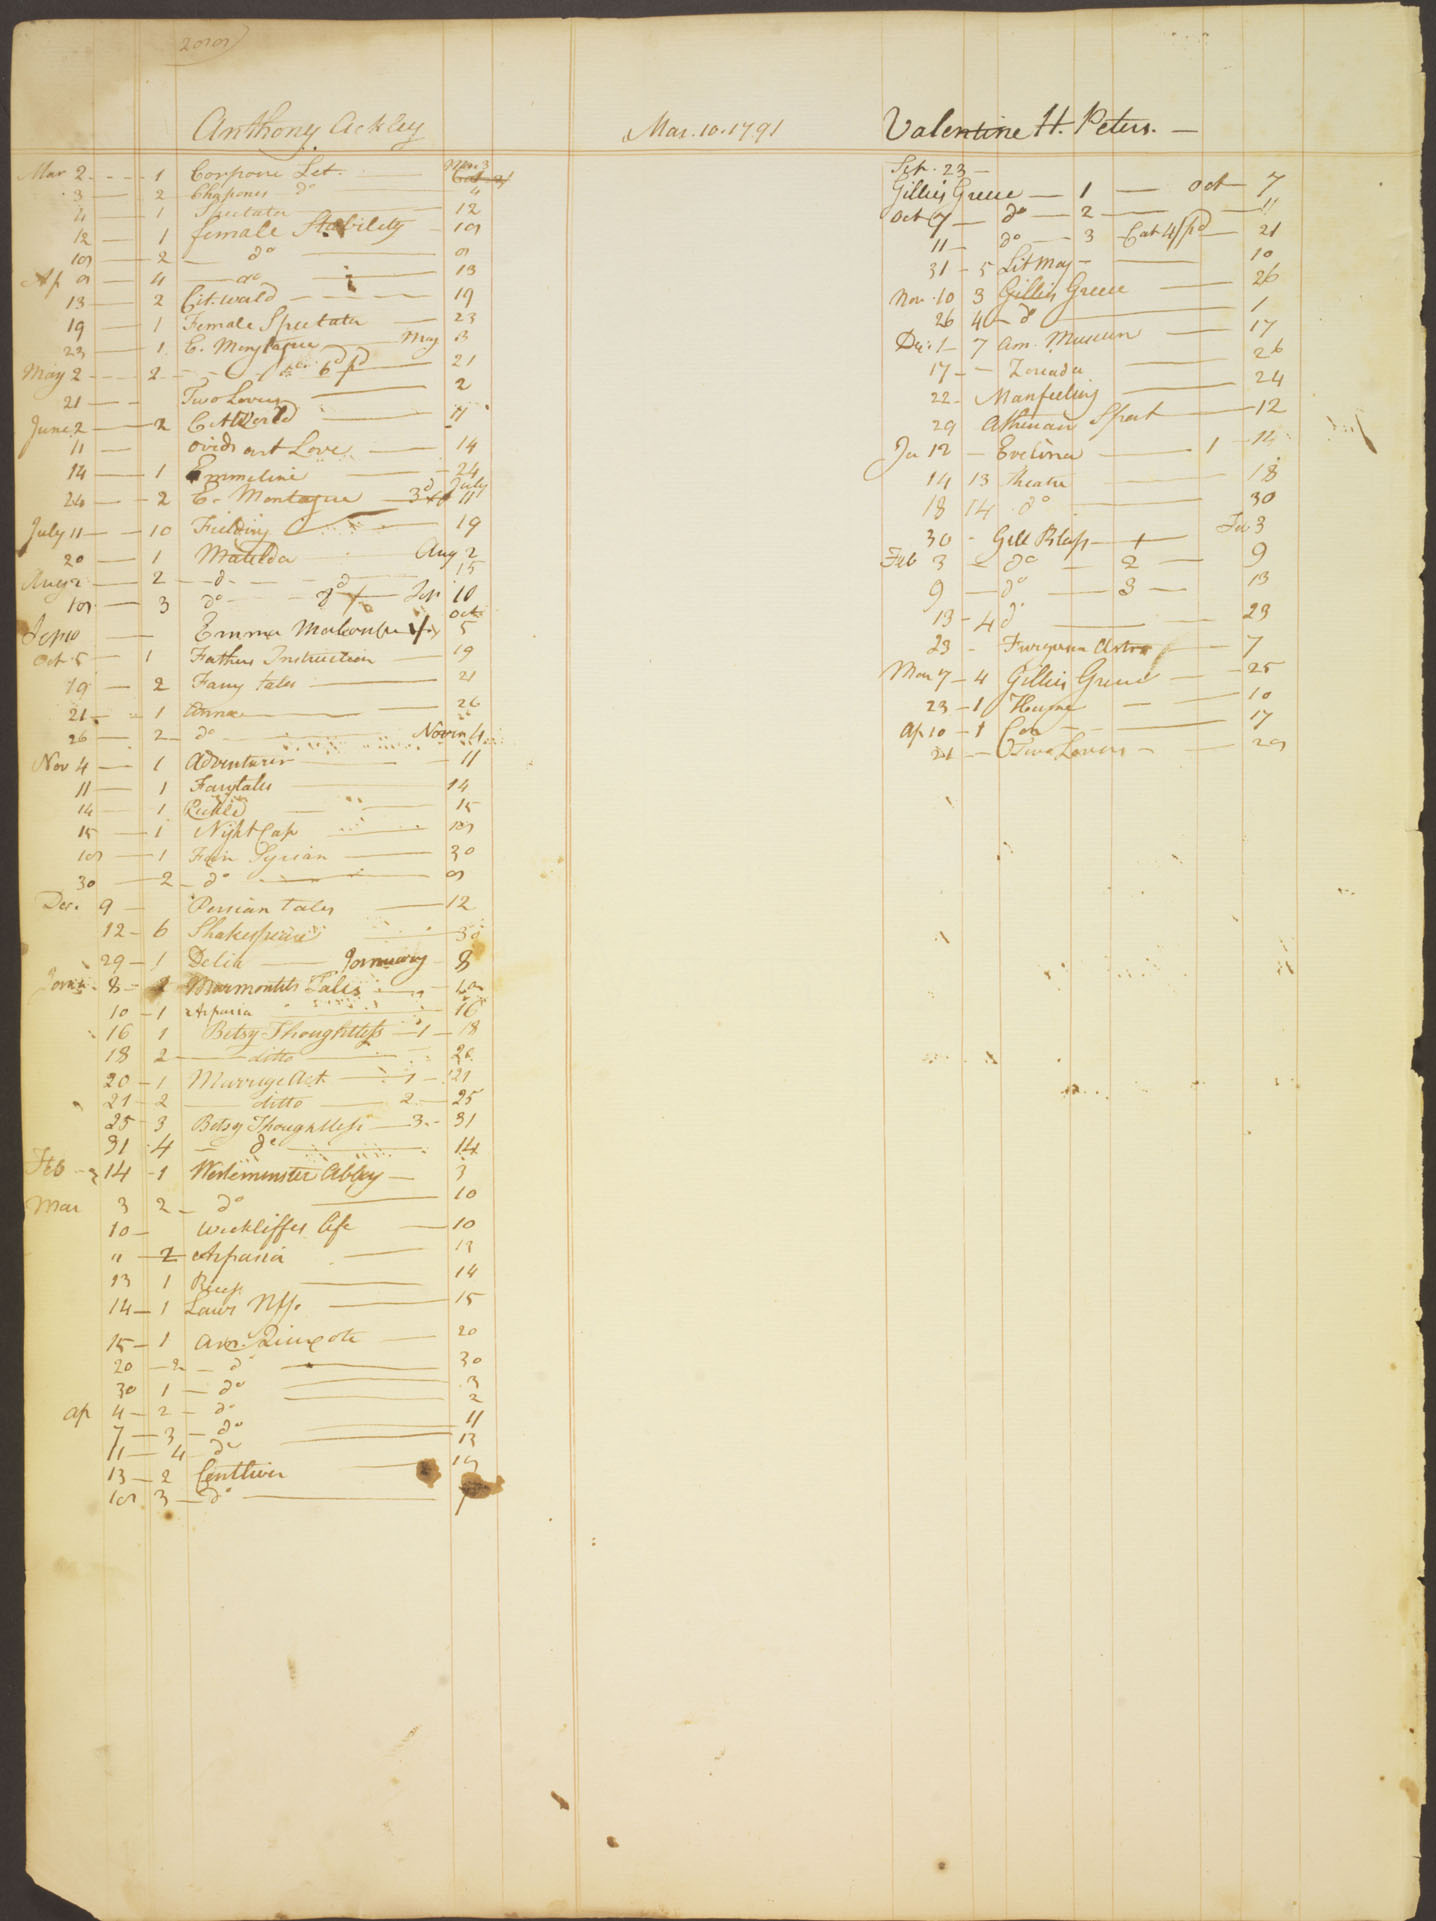 Anthony Ackley
Mar 2 1 Corpone Let. Mar 3
3 2 Chapones do 4
4 1 Spectator 12
12 1 female Stability 19
19 2 do 9
Ap 9 4 do 13
13 2 Cit. world 19
19 1 Female Spectator 23
23 1 E. Montague May 3
May 2 2 6d pd 21
21 Two Lovers 2
June 2 2 Cit World 11
11 ovids art Love 14
14 1 Emmeline 24
24 2 E. Montague 3d July 11
July 11 10 Fielding 19
20 1 Matilda Aug 2
Aug 2 2 d 15
19 3 do Sep 10
Sep 10 Emma Oct 5
Oct 5 1 Fathers Instruction 19
19 2 Fairy tales 21
21 1 Anna 26
26 2 do Novem 4
Nov 4 1 Adventurer 11
11 1 Fairytales 14
14 1 Pickle 15
15 1 Night Cap 19
19 1 Fair Syrian 30
30 2 do 9
Dec. 9 Persian tales 12
12 6 Shakespeare 30
29 1 Delia January 8
8 2 Marmontels Tales 10
10 1 Aspasia 16
16 1 Betsy Thoughtless 1 18
18 2 ditto 20
20 1 Marriage Act 1 21
21 2 ditto 2 25
25 3 Betsy Thoughtless 3 31
31 4 do 14
Feb 14 1 Westeminster Abbey 3
Mar 3 2 do 10
10 Wickliffes life 10
" 2 Aspasia 13
13 1 Recess 14
14 1 Laws 15
15 1 20
20 2 d 30
30 1 do 3
Ap 4 2 do 2
7 3 do 11
11 4 do 13
13 2 Centliver 19
19 3 do
Mar. 10. 1791
Valentine H. Peters.
Sep. 23
Gillies Greece 1 Oct 7
Oct 7 do 2 11
11 do 3 Cat 4/ pd 21
31 5 Lit Mag 10
Nov. 10 3 Gillies Greece 26
26 4 do 1
De: 1 7 Am. Museum 17
17 Zoriada 26
22 Manfeeling 24
29 Athenian Spect 12
Ja 12 Evelina 1 14
14 13 theatre 18
18 14 do 30
30 Gill Blass 1 Feb 3
Feb 3 do 2 9
9 do 3 13
13 4 d 23
23 Furguson Astro 7
Mar 7 4 Gillies Greece 25
23 1 Hume 10
Ap 10 1 17
21 Two Lovers 29